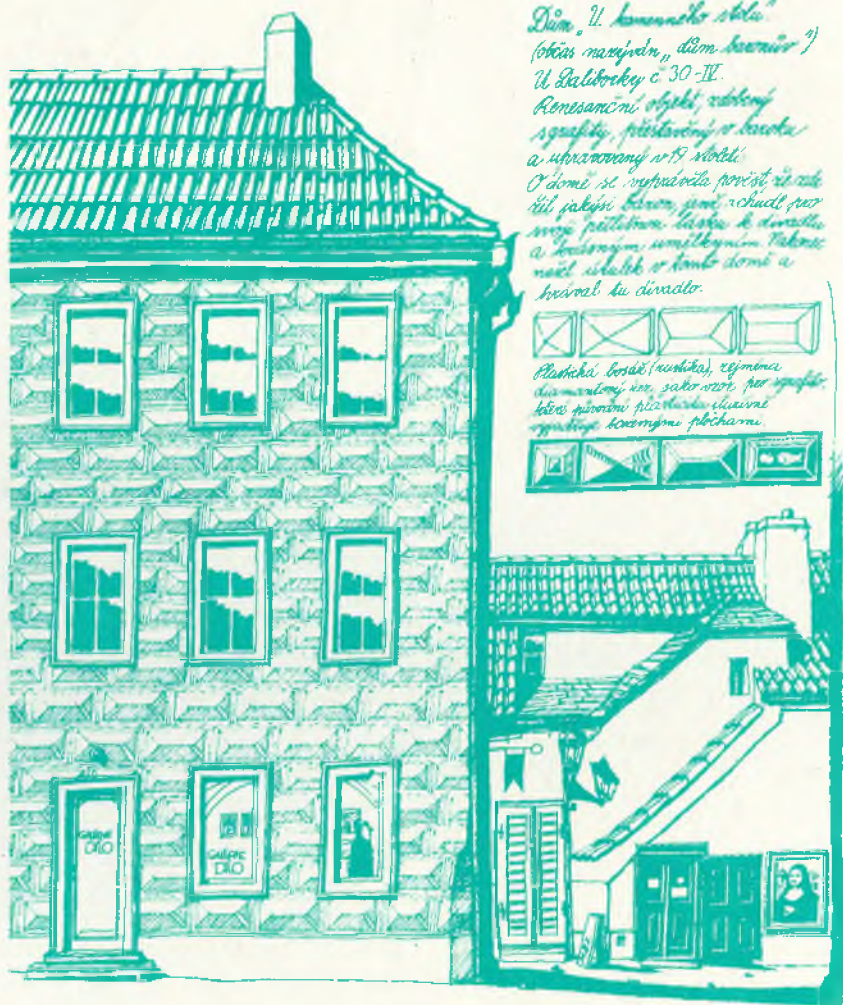 Dům „U kamenného stolu"
(občas nazýván „dům baronův")
U Daliborky č 30-IV.
Renesanční objekt, zdobený
sgrafity, přestavěný v baroku
a upravovaný v 19 století
O domě se vyprávěla pověst, že zde
žil jakýsi baron, jenž zchudl pro
svoji přílišnou lásku k divadlu
a krásným umělkyním. Nakonec
našel útulek v tomto domě a
hrával tu divadlo.
Plastická bosáž (rustika), zejména
diamantový řez, jako vzor pro sgrafito,
které původní plasticitu iluzivně
barevnými plochami.
GALERIE
DÍLO
GALERIE
DÍLO